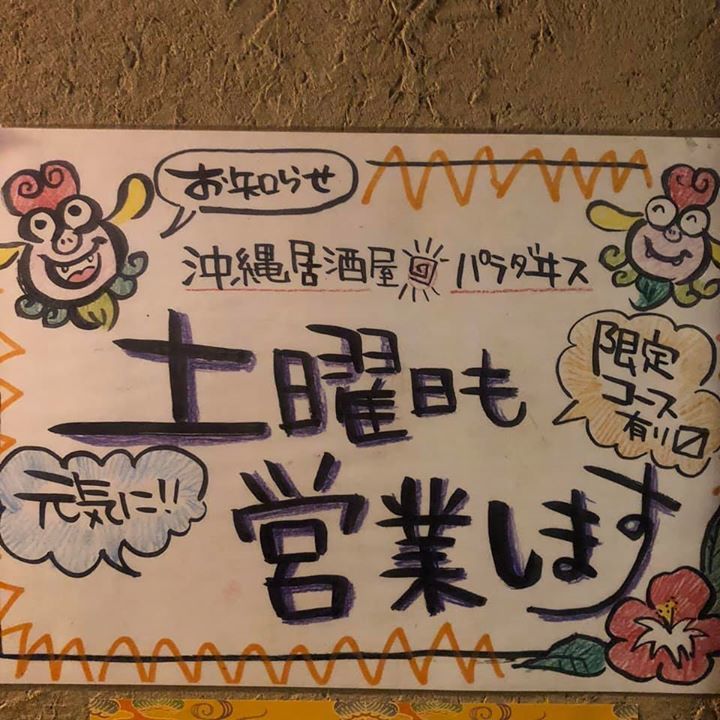 お知らせ
沖縄居酒屋 パラダヰス
土曜日も
限定
コース
有り〼
元気に!!
営業します